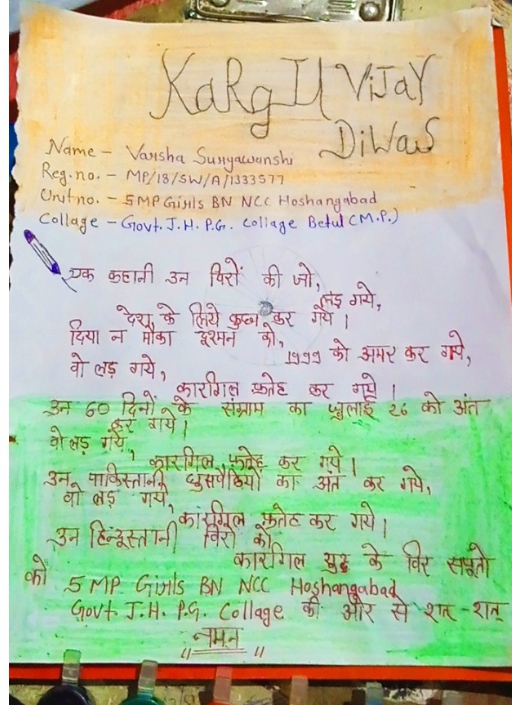 KaRgIl ViJaY
DiWaS
Name - Varsha Suryawanshi
Reg.no. - MP/18/SW/A/1333577
Unit no. - 5MP Girls BN NCC Hoshangabad
Collage - Govt. J.H. P.G. Collage Betul (M.P.)
एक कहानी उन विरों की जो,
लड़ गये,
देश के लिये कुछ कर गये।
दिया न मौका दुश्मन को,
1999 को अमर कर गये,
वो लड़ गये,
कारगिल फ़तेह कर गये।
उन 60 दिनों के संग्राम का जुलाई 26 को अंत
कर गये।
वो लड़ गये,
कारगिल फ़तेह कर गये।
उन पाकिस्तानी घुसपैठियों का अंत कर गये,
वो लड़ गये,
कारगिल फ़तेह कर गये।
उन हिन्दूस्तानी विरों को,
कारगिल युद्ध के विर सपूतो
को 5 MP Girls BN NCC Hoshangabad
Govt J.H. P.G. Collage की और से शत् -शत्
नमन